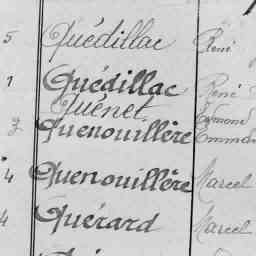 5 Quédillac René
1 Quédillac René
Quénet Edmond
3 Quenouillère Emman
4 Quenouillère Marcel
4 Quérard Marcel